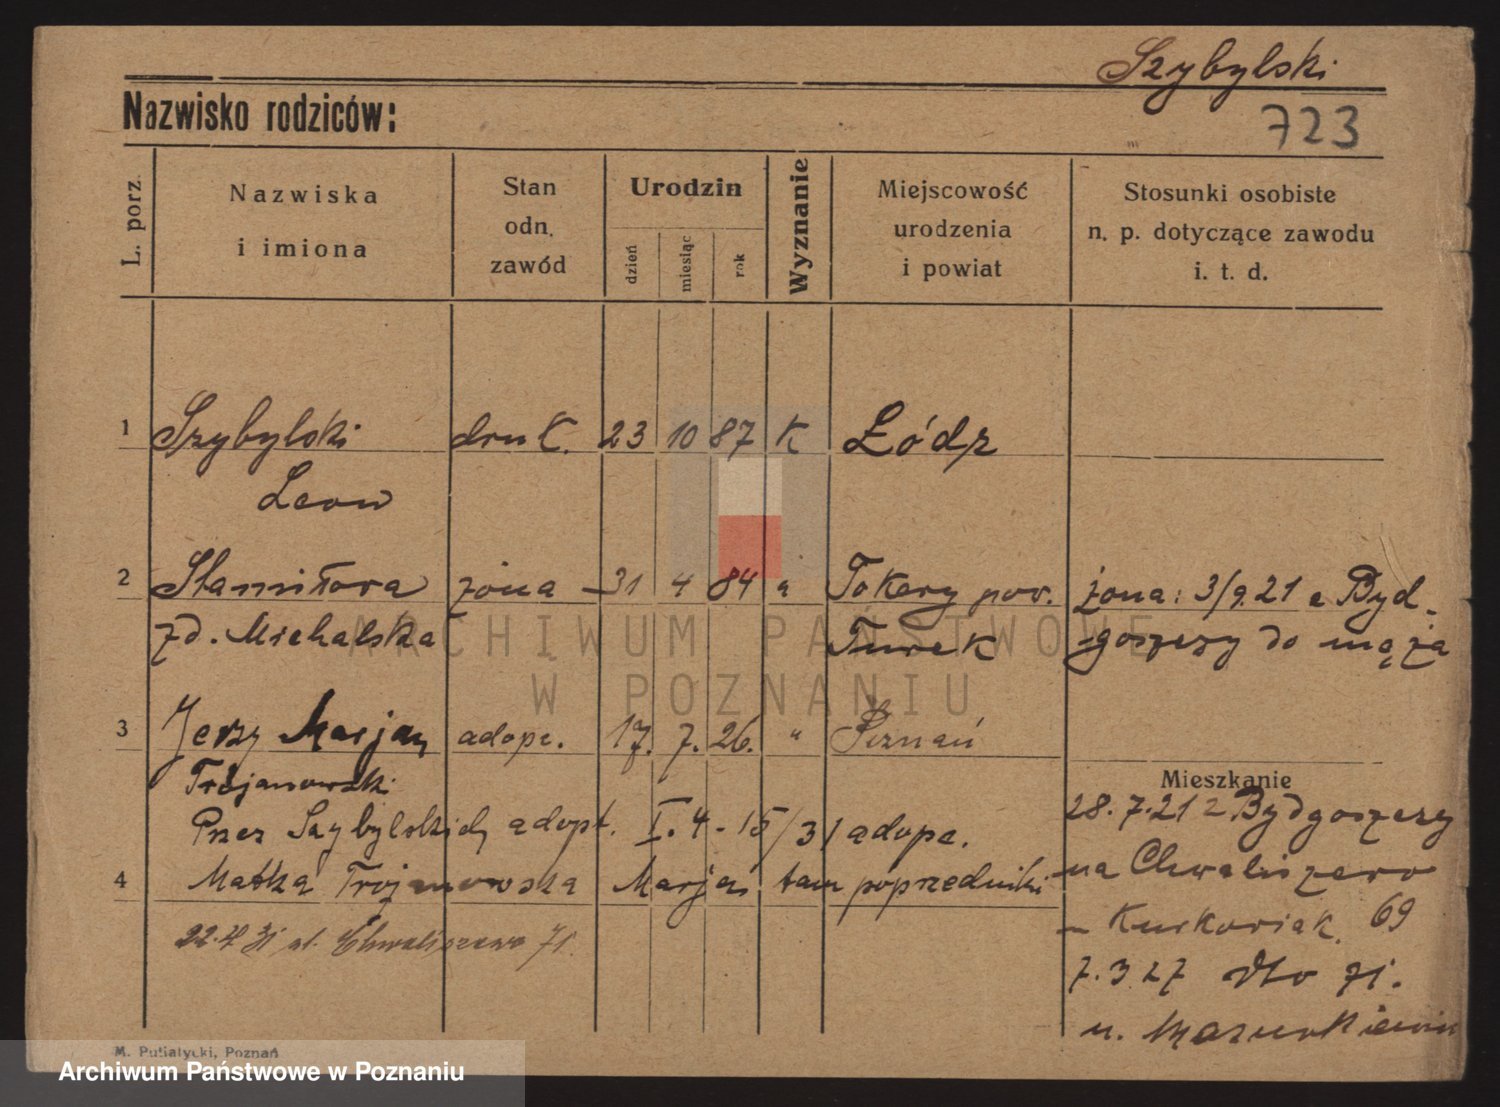 Szybylski
Nazwisko rodziców:
723
L. porz.
Nazwiska
i imiona
Stan
odn.
zawód
Urodzin
dzień
miesiąc
rok
Wyznanie
Miejscowość
urodzenia
i powiat
Stosunki osobiste
n. p. dotyczące zawodu
i. t. d.
1 Szybylski druk. 23 10 87 K Łódz
Leon
2 żona 31 4 84 " Tokary pow. żona: 3/9.21 Byd-
zd. Michalska Turek goszczy do męża
3 Jerzy Marjan adopt. 17. 7. 26. " Poznań
Trojanowski
Mieszkanie
Przez Szybylskich adopt. I. 4-15/31 adopt.
28.7.21 z Bydgoszczy
4 Matka Trojanowska Marja tam poprzedniki
na Chwaliszewo
69
22. 31 ul. Chwaliszewo 71.
7.3.27 dto 71.
u. Mazurkiewicz
M. Putiatycki, Poznań
ARCHIWUM PAŃSTWOWE
W POZNANIU
Archiwum Państwowe w Poznaniu